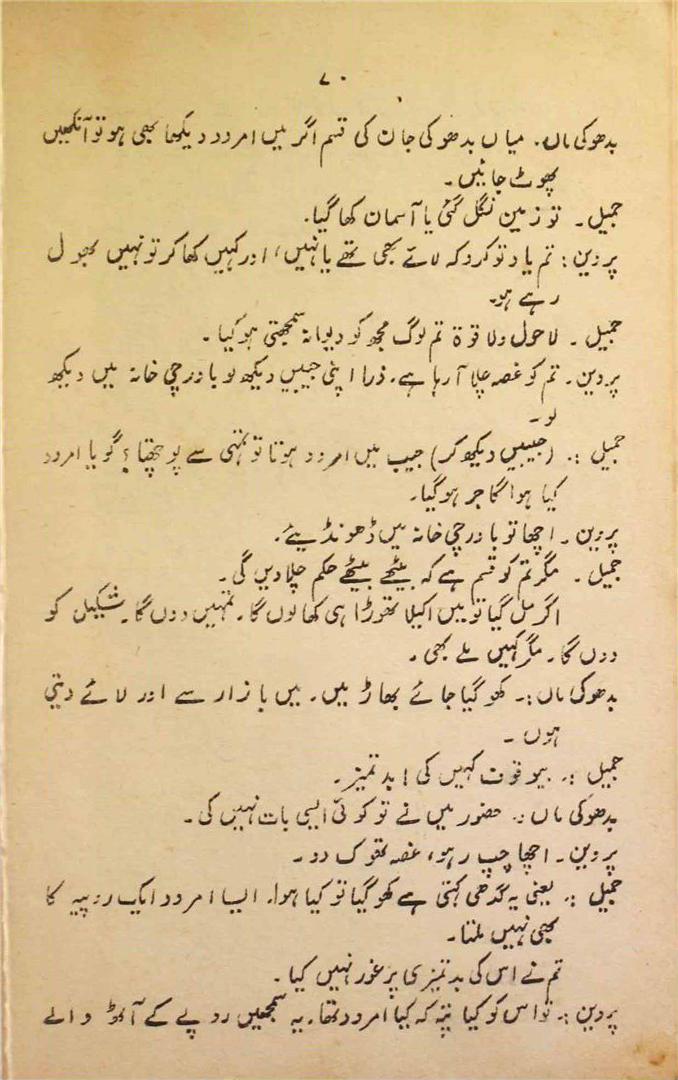 ۷۰
بدھو کی ماں۔ میاں بدھو کی جان کی قسم اگر میں امرود دیکھا بھی ہو تو آنکھیں
پھوٹ جائیں۔
جمیل۔ تو زمین نگل گئی یا آسمان کھا گیا۔
پروین: تم یاد تو کرو کہ لائے بھی تھے یا نہیں، اور کہیں کھا کر تو نہیں بھول
رہے ہو۔
جمیل۔ لاحول ولا قوۃ تم لوگ مجھ کو دیوانہ سمجھتی ہو کیا۔
پروین۔ تم کو غصہ چلا آ رہا ہے۔ ذرا اپنی جیبیں دیکھ لو باورچی خانہ میں دیکھ
لو۔
جمیل:۔ (جیبیں دیکھ کر) جیب میں امرود ہوتا تو تمہی سے پوچھتا؟ گویا امرود
کیا ہوا گاجر ہو گیا۔
پروین۔ اچھا تو باورچی خانہ میں ڈھونڈیئے۔
جمیل۔ مگر تم کو قسم ہے کہ بیٹھے بیٹھے حکم چلا دیں گی۔
اگر مل گیا تو میں اکیلا تھوڑا ہی کھا لوں گا۔ تمہیں دوں گا۔ شکیل کو
دوں گا۔ مگر کہیں ملے بھی۔
بدھو کی ماں:۔ کھو گیا جائے بھاڑ میں۔ میں بازار سے اور لائے دیتی
ہوں۔
جمیل:۔ بیوقوف کہیں کی! بدتمیز۔
بدھو کی ماں:۔ حضور میں نے تو کوئی ایسی بات نہیں کی۔
پروین۔ اچھا چپ رہو، غصہ تھوک دو۔
جمیل:۔ یعنی یہ گدھی کہتی ہے کھو گیا تو کیا ہوا۔ ایسا امرود ایک روپیہ کا
بھی نہیں ملتا۔
تم نے اس کی بدتمیزی پر غور نہیں کیا۔
پروین:۔ تو اس کو کیا پتہ کہ کیا امرود تھا۔ یہ سمجھیں روپے کے آٹھ والے